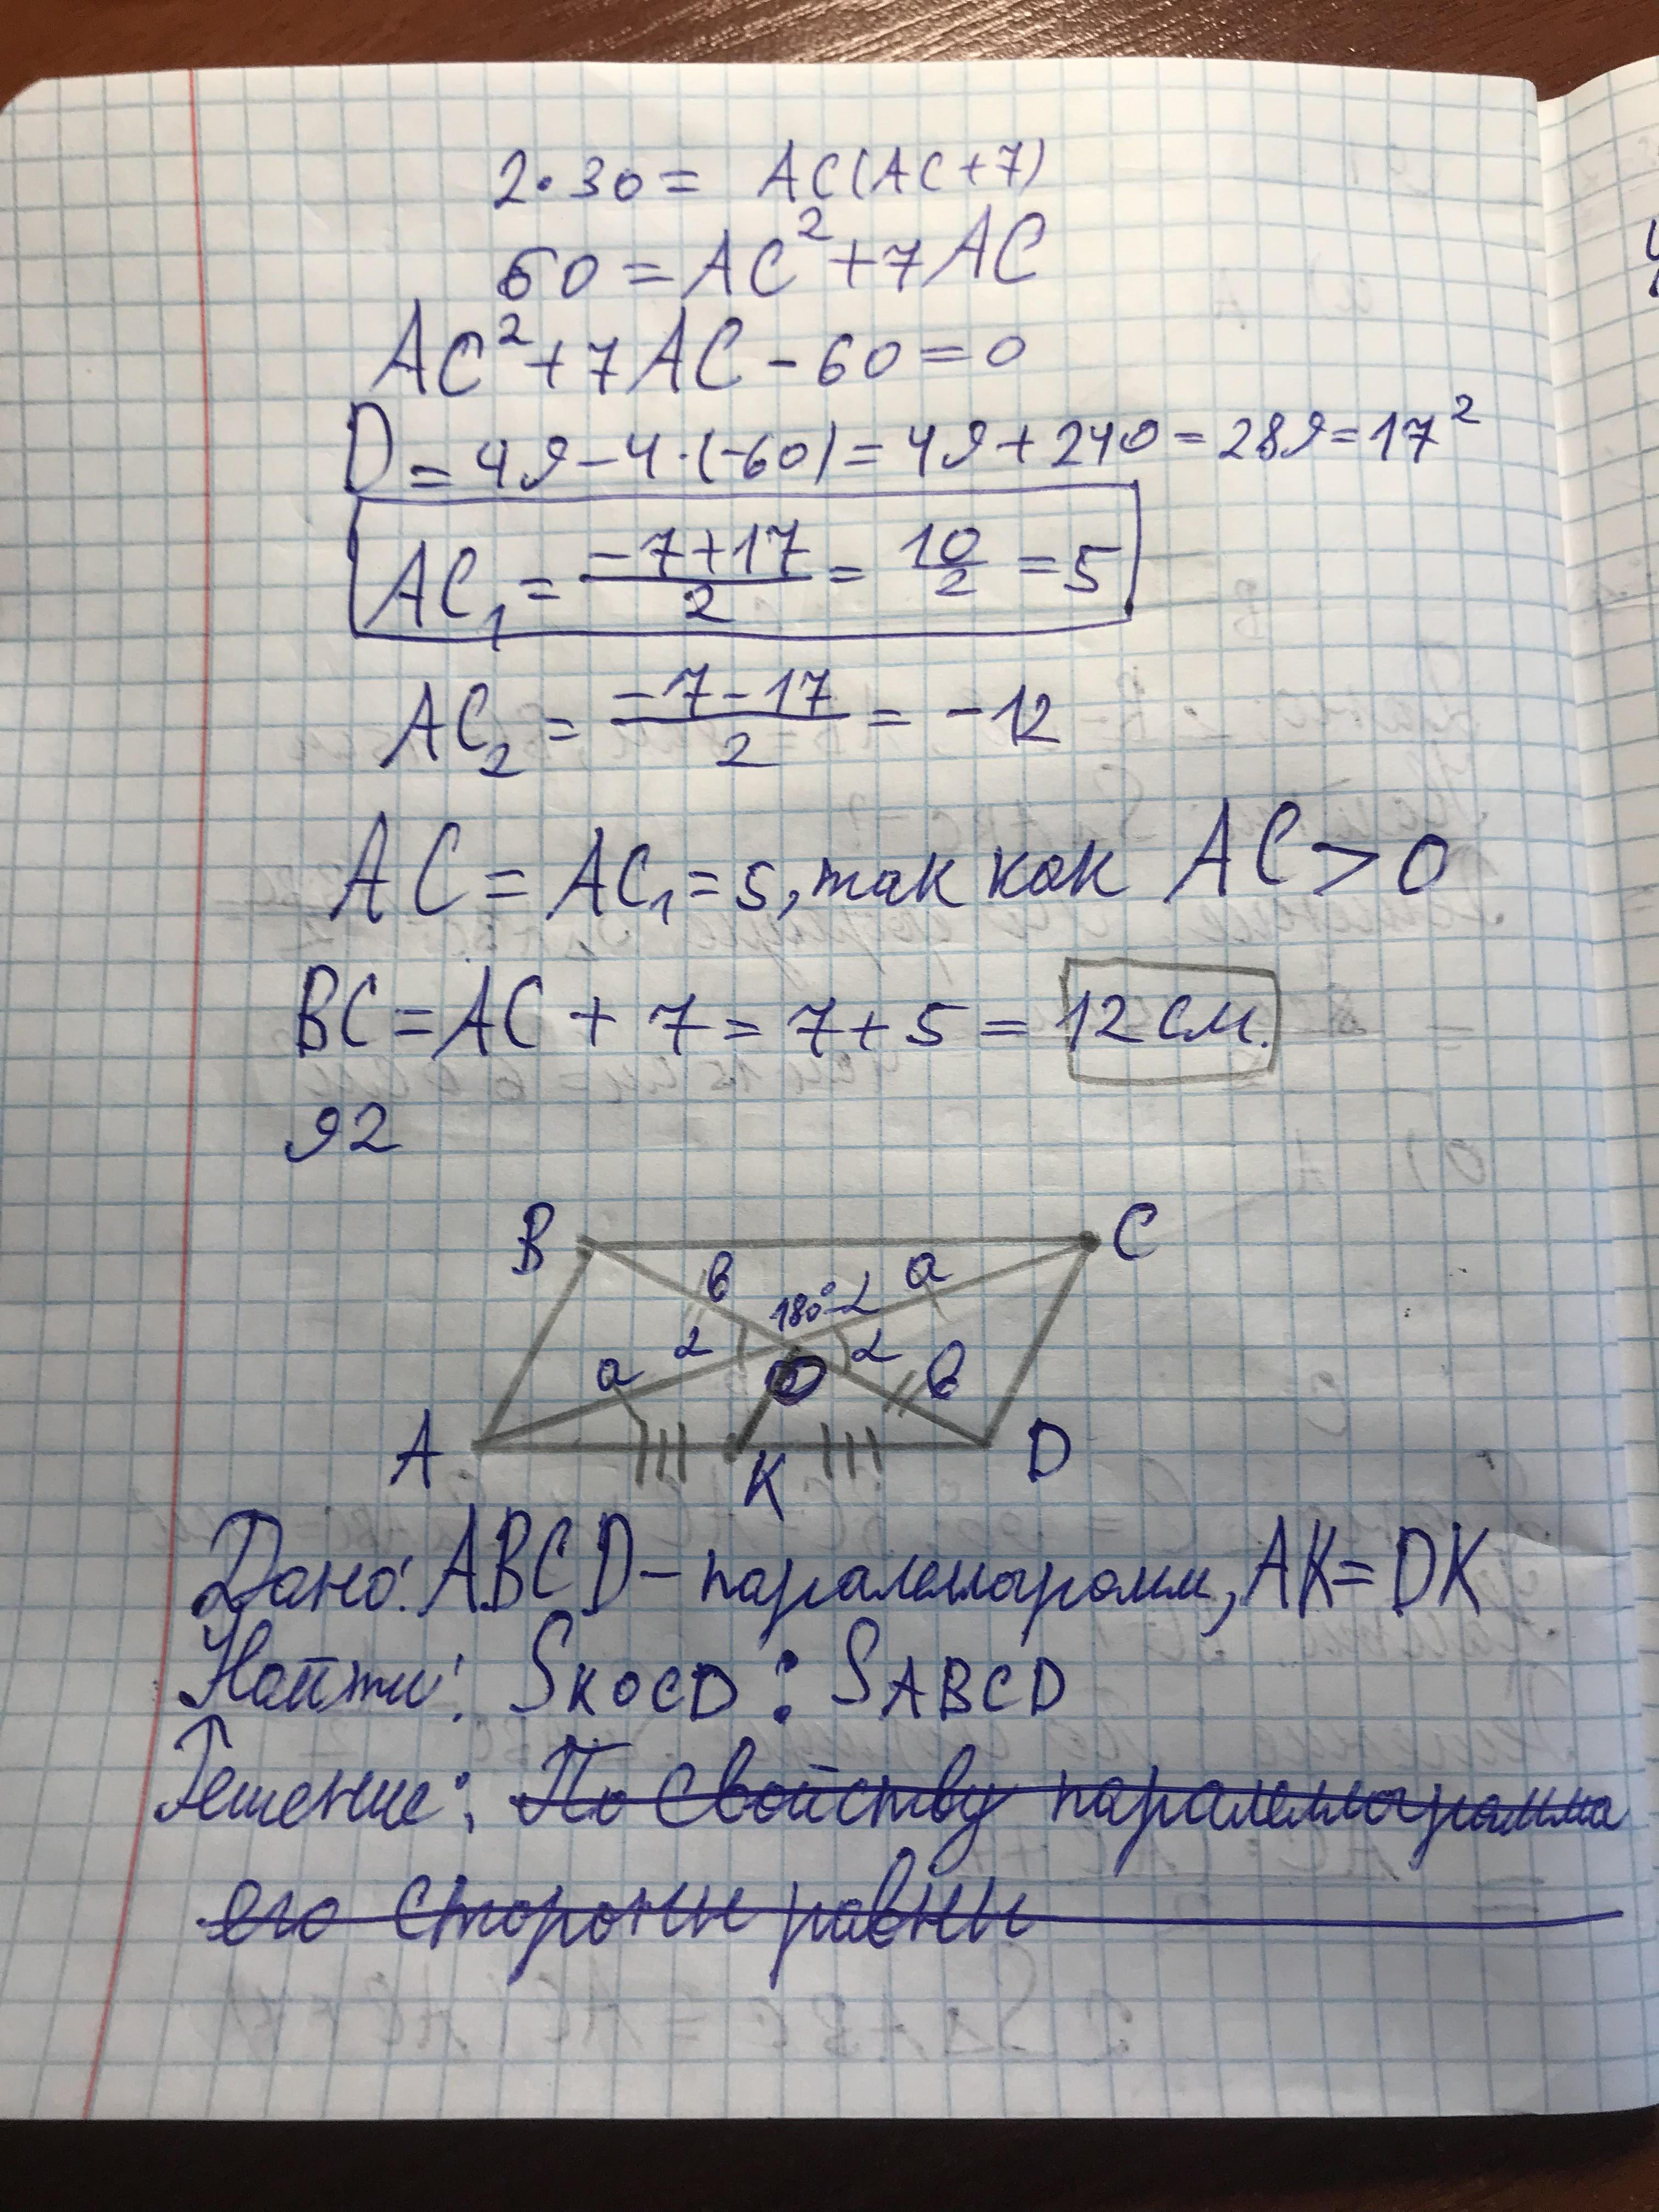 2·30 = AC(AC+7)
60 = AC²+7AC
AC²+7AC-60=0
D = 49-4·(-60)=49+240=289=17²
AC₁ = (-7+17)/2 = 10/2 = 5
AC₂ = (-7-17)/2 = -12
AC = AC₁=5, так как AC>0
BC = AC + 7 = 7+5 = 12 см.
92
B C
в 180°-α a
α α
a O в
A K D
Дано: ABCD - паралеллограмм, AK=DK
Найти: SKOCD : SABCD
Решение: По свойству паралеллограмма
его стороны равны